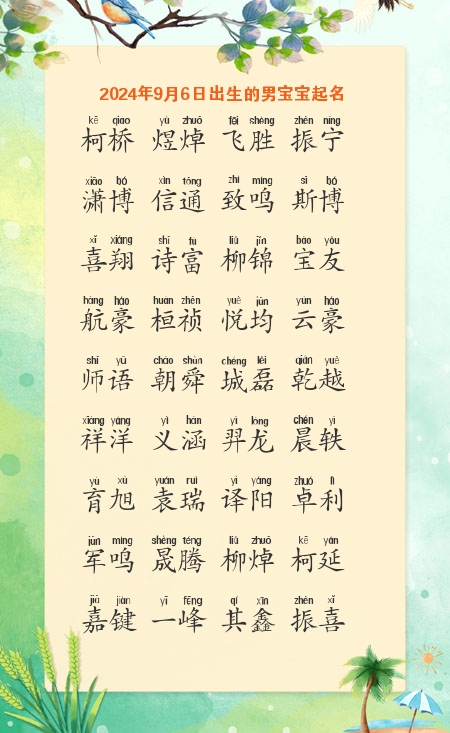 2024年9月6日出生的男宝宝起名
kē qiáo yù zhuō fēi shèng zhèn níng
柯桥 煜焯 飞胜 振宁
xiāo bó xìn tōng zhì míng sī bó
潇博 信通 致鸣 斯博
xǐ xiáng shī fù liǔ jǐn bǎo yǒu
喜翔 诗富 柳锦 宝友
háng háo huán zhēn yuè jūn yún háo
航豪 桓祯 悦均 云豪
shī yǔ cháo shùn chéng lěi qián yuè
师语 朝舜 城磊 乾越
xiáng yáng yì hán yì lóng chén yì
祥洋 义涵 羿龙 晨轶
yù xù yuán ruì yì yáng zhuó lì
育旭 袁瑞 译阳 卓利
jūn míng shèng téng liǔ zhuō kē yán
军鸣 晟腾 柳焯 柯延
jiā jiàn yī fēng qí xīn zhèn xǐ
嘉键 一峰 其鑫 振喜